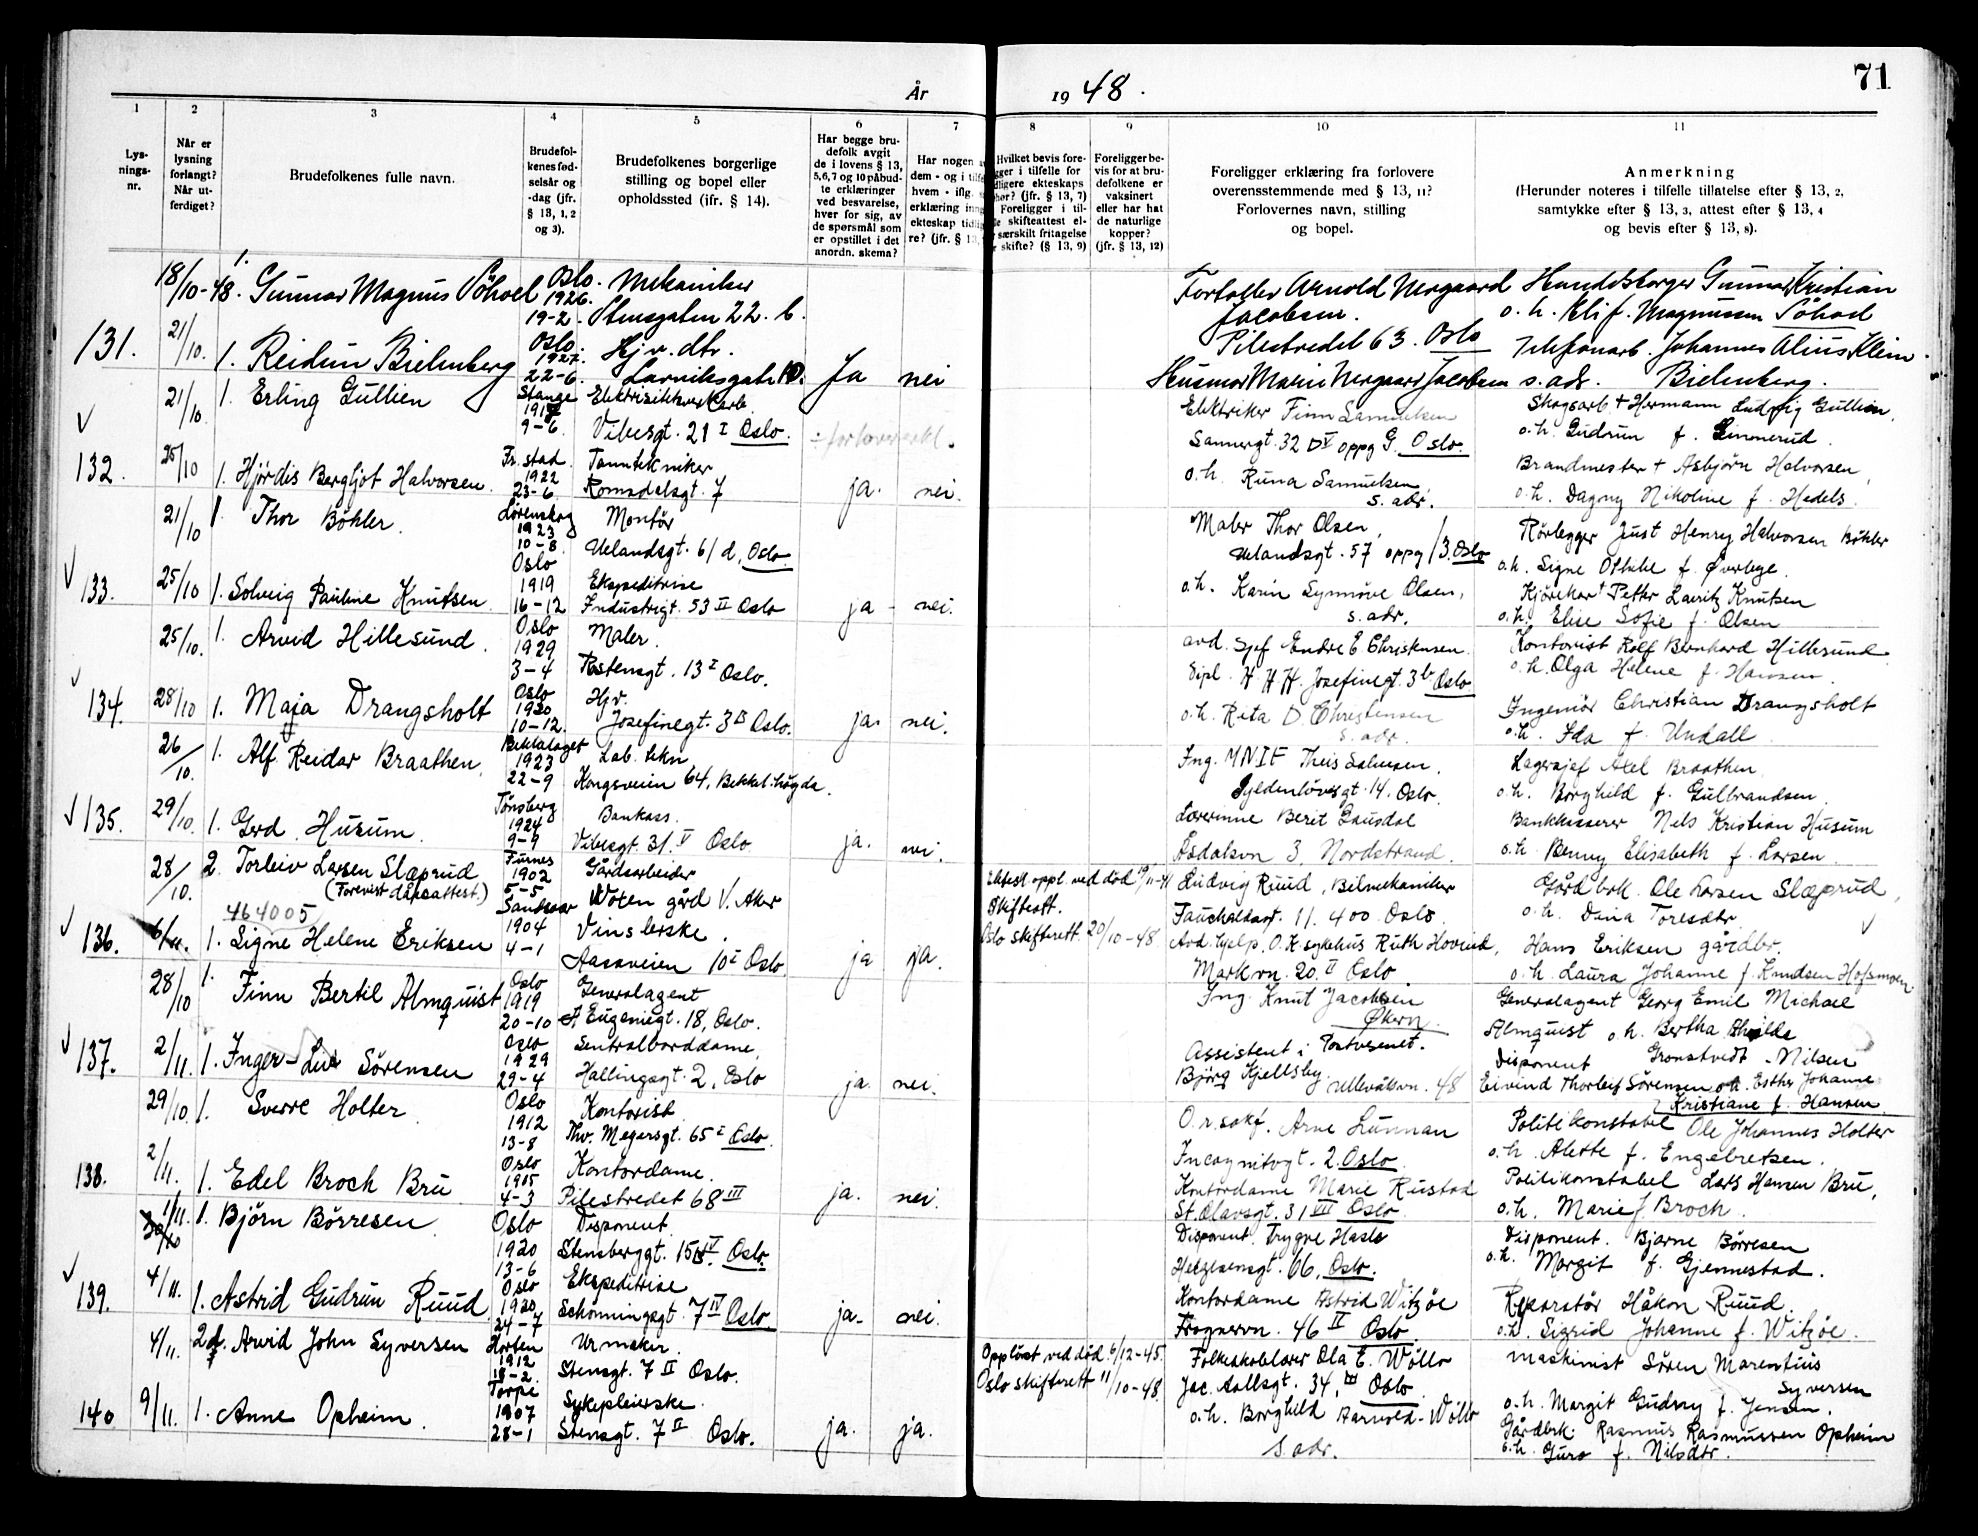 71
År
19 48.
1
2
3
4
5
6
7
8
9
10
11
Lys-
nings-
nr.
Når er
lysning
forlangt?
Når ut-
ferdiget?
Brudefolkenes fulle navn.
Brudefol-
kenes fød-
selsår og
-dag (jfr.
§ 13, 1, 2
og 3).
Brudefolkenes borgerlige
stilling og bopel eller
opholdssted (ifr. § 14).
Har begge bru-
defolk avgit
de i lovens § 13,
5,6,7 og 10 påbud-
te erklæringer
ved besvarelse,
hver for sig, av
de spørsmål som
er opstillet i det
anordn. skema?
Har nogen
dem - og i
hvem - iflg.
erklæring
ekteskap
re? (jfr. § 13,
Hvilket bevis fore-
ger i tilfelle for
dligere ekteskaps
(jfr. § 13, 7)
Foreligger i til-
skifteattest el-
særskilt fritagelse
skifte? (§ 13, 9)
Foreligger be-
vis for at bru-
defolkene er
vaksinert
eller har hat
de naturlige
kopper?
(jfr. § 13, 12)
Foreligger erklæring fra forlovere
overensstemmende med § 13, 11?
Forlovernes navn, stilling
og bopel.
Anmerkning
(Herunder noteres i tilfelle tillatelse efter § 13, 2,
samtykke efter § 13, 3, attest efter § 13, 4
og bevis efter § 13, 8).
18/10-48. 1. Gunnar Magnus Söhoel Oslo. 1926. 19-2. Mekaniker
Stensgaten 22. b.
Forfatter Arnold Nergaard
Jacobsen.
Pilestredet 63. Oslo
Gunnar Kristian
o. h. f. Magnussen Söhoel
131. 21/10. 1. Reidun Bielenberg Oslo. 1927. 22-6. Hj.v. dtr.
Larviksgate 10. Ja nei
Husmor Marie Nergaard Jacobsen s. adr.
Telefonarb. Johannes Alius Klein
Bielenberg.
21/10 1. Erling Gullien Stange 9-6.
Vibesgt. 21 I Oslo.
Elektriker Finn Samuelsen
Sannergt. 32 D V oppg G. Oslo.
Skogsarb. + Hermann Ludvig Gullien.
o.h. Gudrun f. Simmerud.
132. 25/10 1. Hjördis Bergljot Halvorsen. Fr.stad 1922 23-6. Tanntekniker
Romsdalsgt. 7 ja. nei.
o.h. Runa Samuelsen,
s. adr.
Brandmester + Asbjörn Halvorsen,
o.h. Dagny Nikoline f. Hedels.
21/10 1. Thor Böhler. Lørenskog 1923 10-8. Montör
Uelandsgt. 61 d, Oslo.
Maler Thor Olsen,
Uelandsgt. 57 oppg 3. Oslo
Rörlegger Just Henry Halvorsen Böhler
o.h. Signe f. Øverbye.
133. 25/10 1. Solveig Pauline Knutsen. Oslo 1919 16-12 Ekspeditrise
Industrigt. 53 II Oslo ja - nei.
o.h. Karin Synnöve Olsen,
s. adr.
Kjörekar + Petter Lauritz Knutsen
o.h. Elise Sofie f. Olsen
25/10. 1. Arvid Hillesund. Oslo 1929 3-4 Maler.
13 I Oslo.
avd. sjef Endre E Christensen.
dipl. H H H. Josefinegt. 3b Oslo
Kontorist Rolf Bernhard Hillesund
o.h. Olga Helene f. Hansen.
134. 28/10 1. Maja Drangsholt Oslo 1920 10-12. Hjv.
Josefinegt. 3 B Oslo. ja. nei.
o.h. Rita D. Christensen
s. adr.
Ingeniør Christian Drangsholt
o.h. Ida f. Undall
26/10. 1. Alf Reidar Braathen. Bekkelaget 1923 22-9 Lab. tekn
Kongsveien 64, Bekkel.högda.
Ing. MNIF Theis Salvesen.
Gyldenlövesgt. 14. Oslo.
Lagersjef Axel Braathen
o.h. Borghild f. Gulbrandsen.
135. 29/10. 1. Gerd Husum. Tönsberg 1924 9-9 Bankass.
Vibesgt 31. V Oslo. ja. nei.
Lærerinne Berit Gausdal
Åsdalsvn 3, Nordstrand.
Bankkasserer Nils Kristian Husum
o.h. Benny Elisabeth f. Larsen.
28/10. 2. Torleiv Larsen Slæprud Furnes 1902 5-5 Gårdsarbeider
(Forevist dåpsattest.)
Woxen gård V. Aker
Ektesk. oppl. ved död
Skifteatt.
Oslo skifterett. 20/10-48
Ludvig Ruud, Bilmekaniker
Fauchaldsgt. 11. 400 Oslo.
Gårdbrk. Ole Larsen Slæprud,
o.h. Dina Toresdtr.
464005
136. 6/11. 1. Signe Helene Eriksen 1904 4-1 Vinslerske
Aasaveien 10 I Oslo. ja ja.
Avd. hjelp. O.K. sykehus Ruth Hovind,
Markvn. 20. II Oslo
Hans Eriksen gårdbr.
o.h. Laura Johanne f. Knudsen Hofsmoen.
28/10 1. Finn Bertil Almquist Oslo 1919 20-10 Generalagent
Eugeniegt. 18, Oslo.
Ing. Knut Jacobsen
Økern
Generalagent Georg Emil Michael
Almquist o.h. Bertha
Gronstvedt-Nilsen
137. 2/11. 1. Inger-Liv Sörensen Oslo 1929 29-4 Sentralborddame.
Hallingsgt. 2, Oslo ja. nei.
Assistent i Postvesenet.
Bjørg Kjellsby. Ullevålsvn. 48
Disponent
Eivind Thorleif Sörensen o.h. Esther Johanne
Kristiane f. Hansen.
29/10 1. Sverre Holter Oslo 1912 13-8 Kontorist
Thv. Meyersgt. 65 I Oslo.
O.r.sakf. Arne Lunnan
Incognitogt. 2. Oslo
Politikonstabel Ole Johannes Holter
o.h. Alette f. Engebretsen.
138. 2/11. 1. Edel Broch Bru Oslo 1905 4-3 Kontordame.
Pilestredet 68 III ja. nei.
Kontordame Marie Rustad
St. Olavsgt. 31 VII Oslo.
Politikonstabel Lars Hansen Bru,
o.h. Marie f Broch.
1/11. 1. Björn Börresen Oslo 1920 13-6 Disponent.
30/10
Stensberggt. 15 IV. Oslo.
Disponent. Trygve Hasle
Helgesensgt. 66, Oslo.
Disponent. Bjarne Börresen
o.h. Margit f. Gjennestad.
139. 4/11. 1. Astrid Gudrun Ruud Oslo 1920 24-7 Ekspeditrise
Schönningsgt. 7 IV Oslo. ja. nei.
Kontordame Astrid Witzöe
Frognervn. 46 II Oslo.
Reparatör Håkon Ruud.
o.h. Sigrid Johanne f. Witzöe.
4/11. 2. Arvid John Syversen Horten 1912 18-2. Urmaker.
Stensgt. 7 II Oslo.
Opplöst ved död. 6/12-45.
Oslo skifterett 11/10-48.
Folkeskolelærer Ola E. Wöllo
Jac. Aallsgt. 34, III Oslo
Maskinist Sören Marentius
Syversen
o.h. Margit Gudny f. Jensen.
140 9/11. 1. Anne Opheim. Torpe 1907 28-1 Sykepleierske.
Stensgt. 7 II Oslo. ja. ja.
o.h. Borghild Aarvold-Wöllo
s. adr.
Gårdbrk. Rasmus Rasmussen Opheim
o.h. Guro f. Nilsdtr.